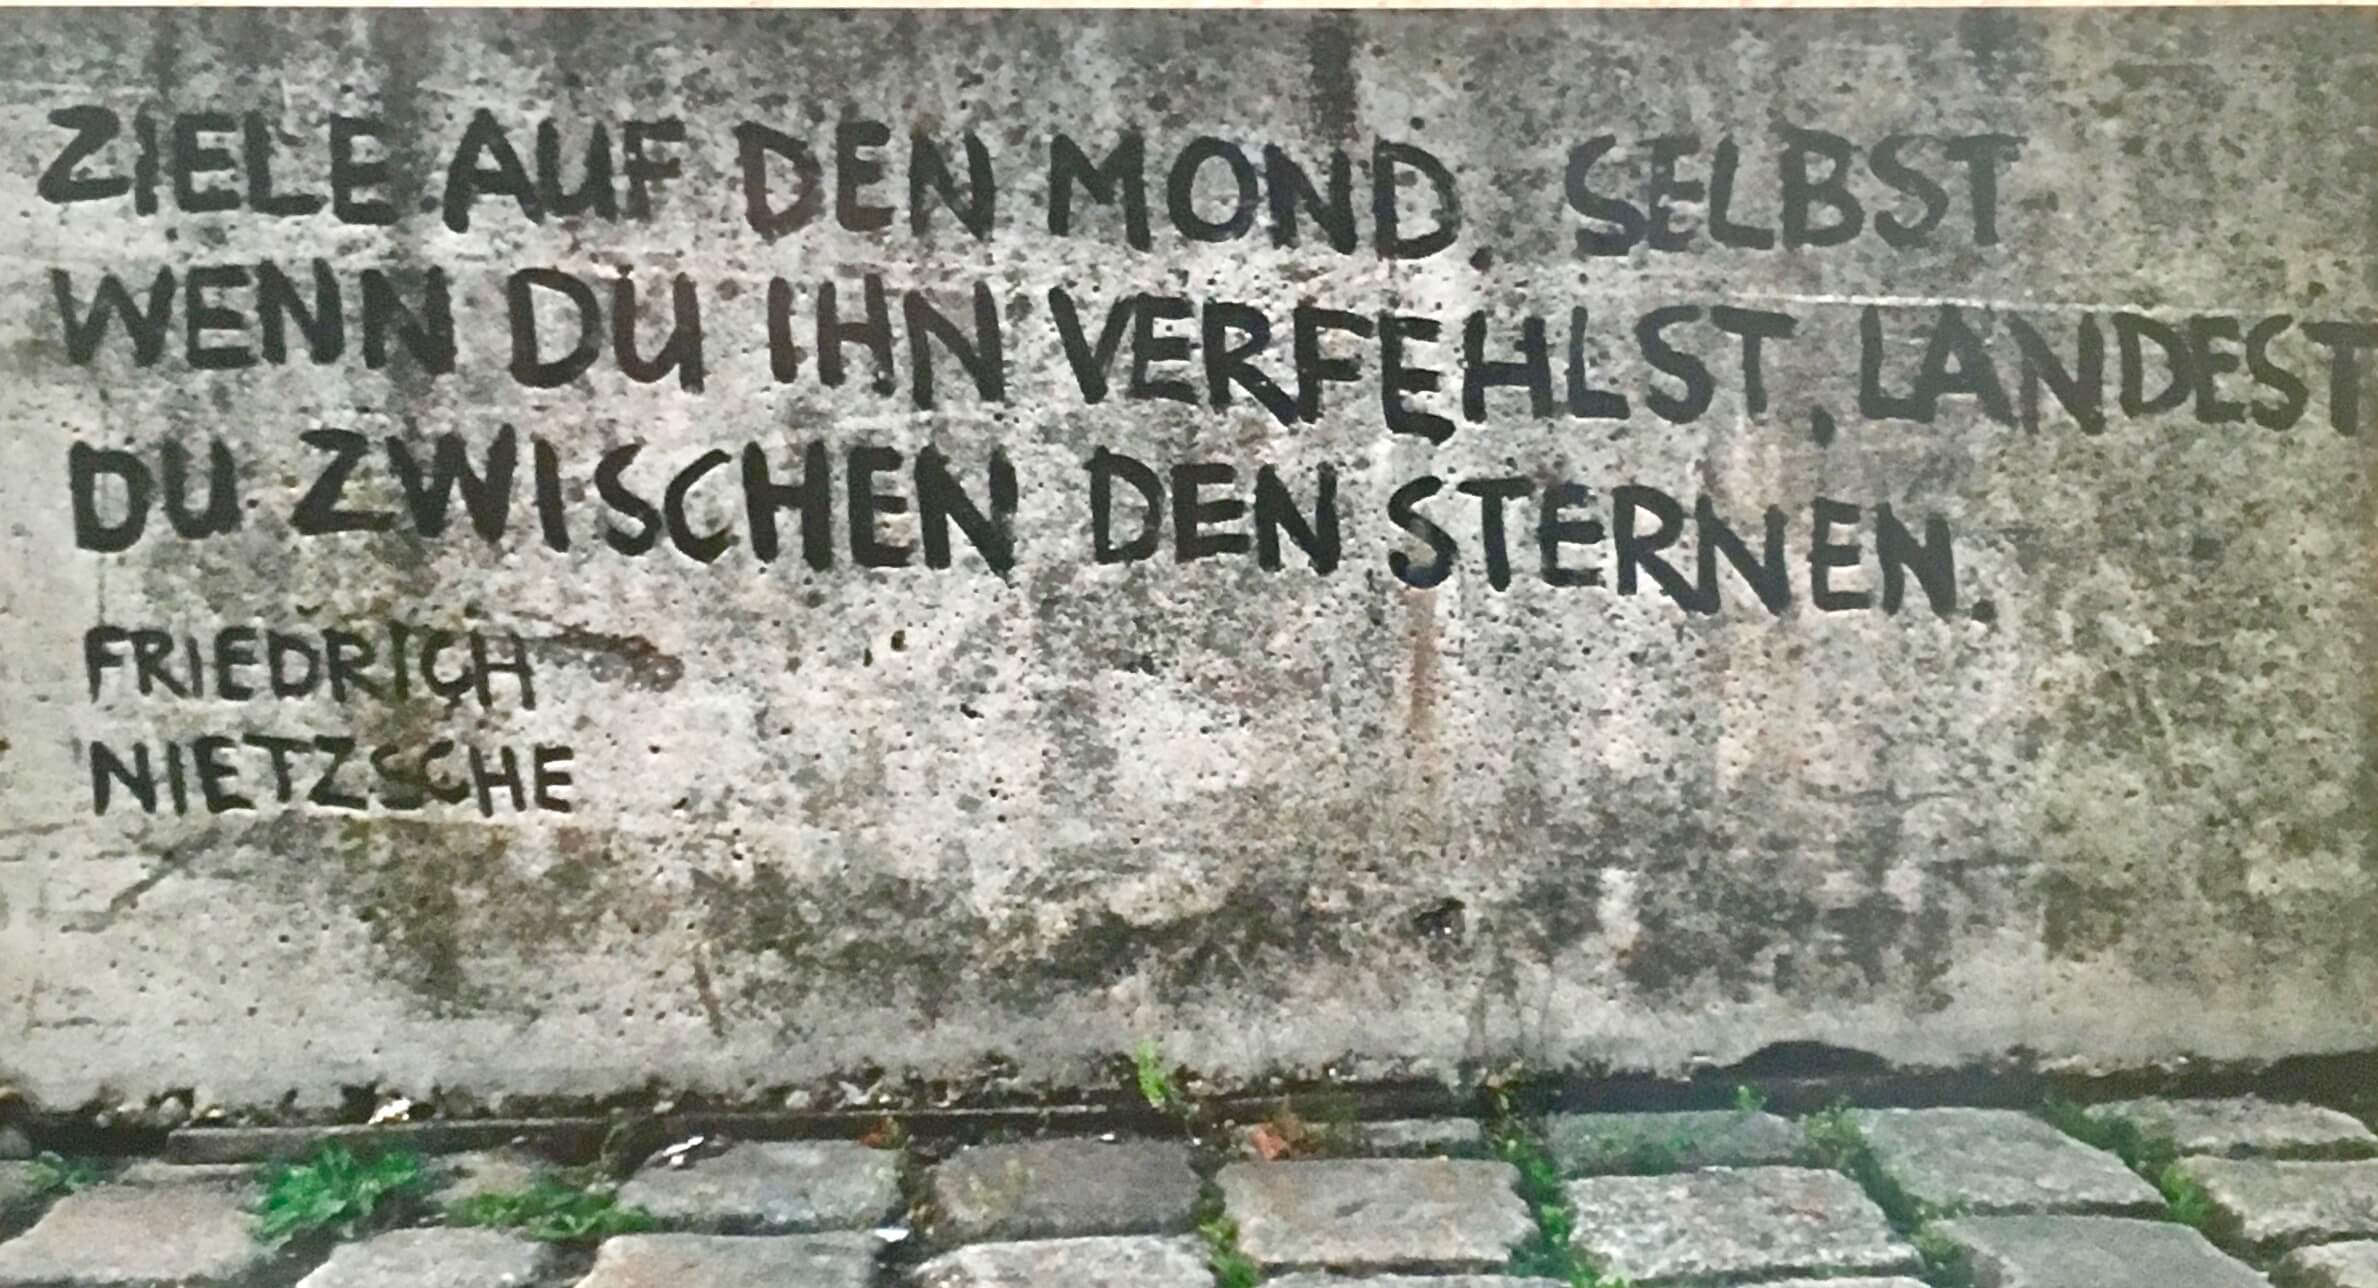 ZIELE AUF DEN MOND. SELBST
WENN DU IHN VERFEHLST, LANDEST
DU ZWISCHEN DEN STERNEN.
FRIEDRICH
NIETZSCHE